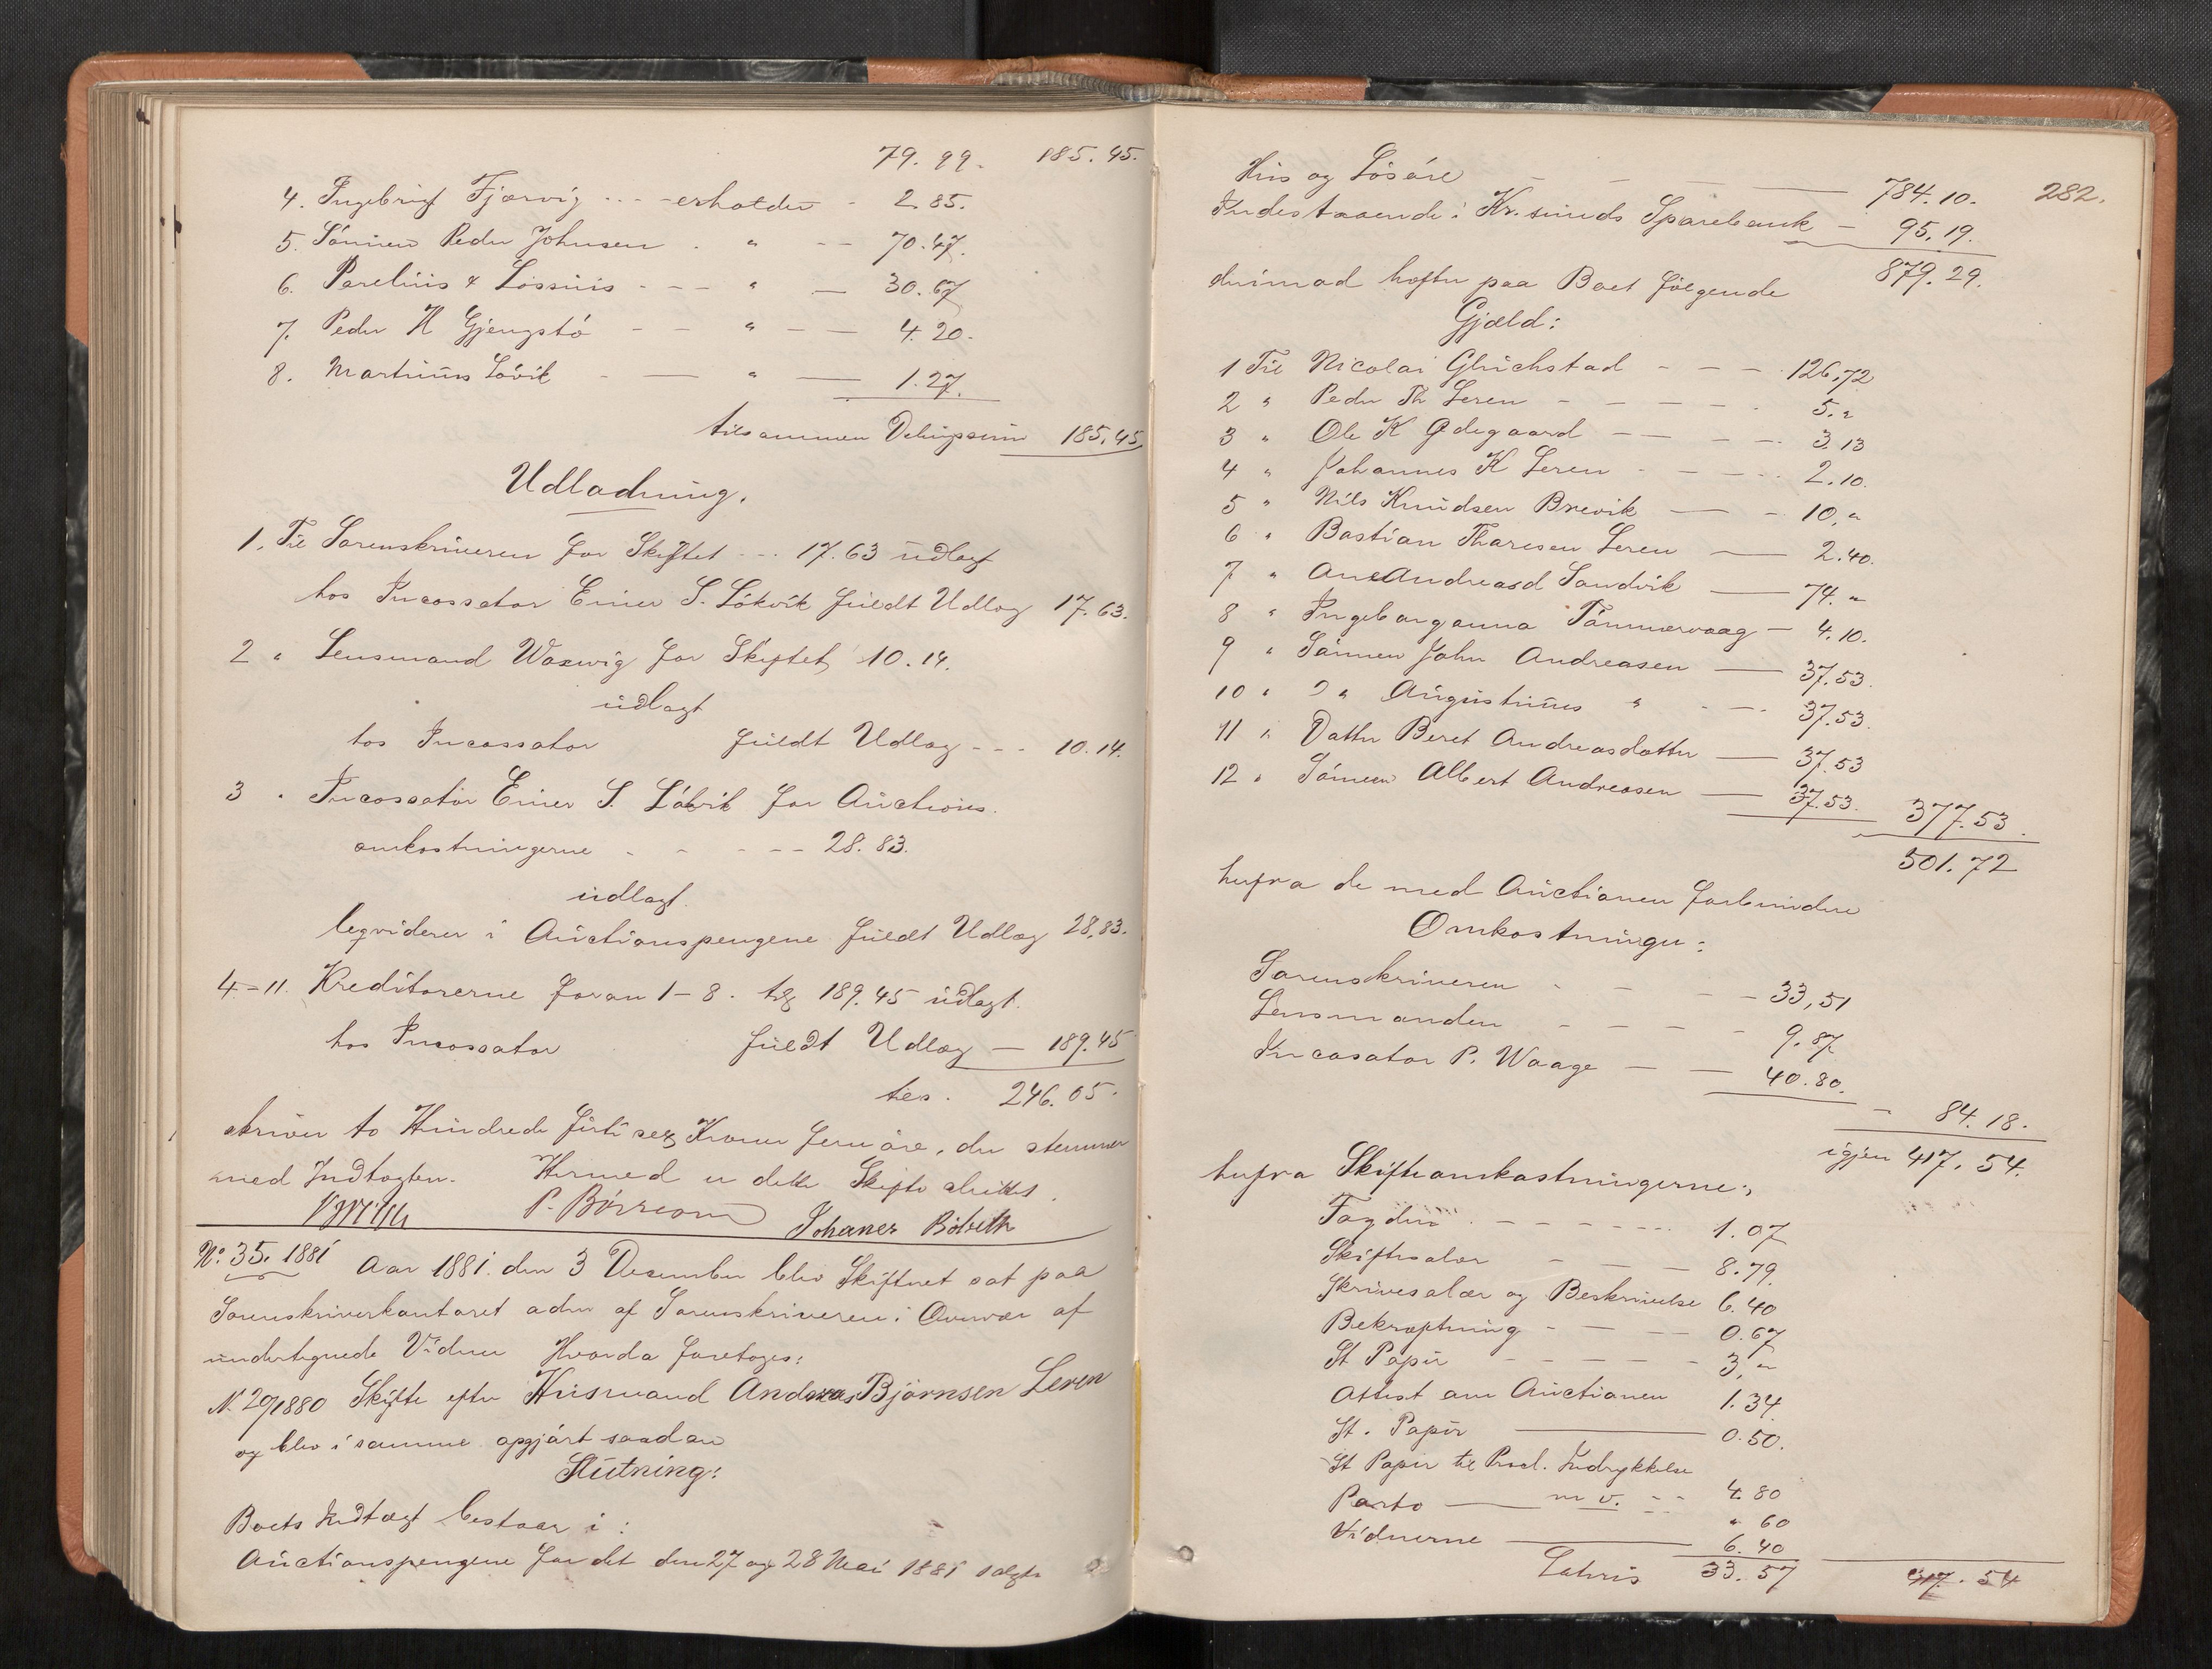 79.99. 185.45.
4. Ingebrigt Fjærvig - - - erholder - 2.85.
5. Sönnen Peder Johnsen . " - - 70.47.
6. Parelius & Lossius - - - " — 30.67
7. Peder H Gjengstö - - " - — 4.20.
8. Martinus Lövik - — " — 1.27.
tilsammen Delingssum 185.45.
Udlodning.
1. Til Sorenskriveren for Skiftet - - - 17.63 udlagt
hos Incassator Einer S. Lökvik fuldt Udlæg 17.63.
2 " Lensmand Waxwig for Skiftet 10.14.
udlagt
hos Incassator fuldt Udlæg - - - 10.14.
3 " Incassator Einer S. Lökvik for Auctions.
omkostningerne - - - - - 28.83.
udlagt.
leqviderer i Auctionspengene fuldt Udlæg 28.83.
4-11. Kreditorerne foran 1-8. tils 189.45 udlagt.
hos Incassator fuldt Udlæg — 189.45
tils. 246.05.
skriver to Hundrede firti sex Kroner fem öre, der stemmer
med Indtægten. Hermed er dette Skifte sluttet.
P. Börreson Johanes Bölseth
No. 35. 1881 Aar 1881. den 3 December blev Skifteret sat paa
Sorenskriverkontoret adm af Sorenskriveren i Overvær af
undertegnede Vidner Hvorda foretoges:
N. 29/1880 Skifte efter Husmand Andreas Björnsen Leren
og blev i samme opgjort saadan
Slutning:
Boets Indtægt bestaar i:
Auctionspengene for det den 27 og 28 Mai 1881 solgte
282.
Hus og Lösöre - - - — 784.10.
Indestaaende i Kr.sunds Sparebank - 95.19.
879.29.
hvimod hefter paa Boet fölgende
Gjæld:
1 Til Nicolai Gluckstad - - - 126.72
2 " Peder Th Leren - - - - - 5."
3 " Ole K Ødegaard - - - - 3.13
4 " Johannes K Leren - - - - 2.10.
5 " Nils Knudsen Brevik — - 10."
6 " Bastian Tharesen Leren — 2.40.
7 " Ane Andreasd Sandvik — 74."
8 " Ingeborganna Tömmervaag - 4.10.
9 " Sönnen John Andreasen — 37.53.
10 " D " Augustinus " - - - 37.53.
11 " Datter Beret Andreasdatter — 37.53
12 " Sönnen Albert Andreasen — 37.53. 377.53.
501.72
herfra de med Auctionen forbundne
Omkostninger:
Sorenskriveren - - - - 33,51
Lensmanden - - - - 9.87
Incasator P. Waage — — 40.80.
- 84.18.
igjen 417.54.
herfra Skifteomkostningerne:
Tagden - - - - - - 1.07
Skiftesalær - - - 8.79.
Skrivesalær og Beskrivelse 6.40
Bekræftning - - - - 0.67
St Papir - - - - - 3,"
Attest om Auctionen 1.34
St. Papir — 0.50.
St Papir til Procl. Indrykkelse
m v. - - 4.80
Porto — - - " 60
Vidnerne — 6.40
Lateris 33.57 417.54